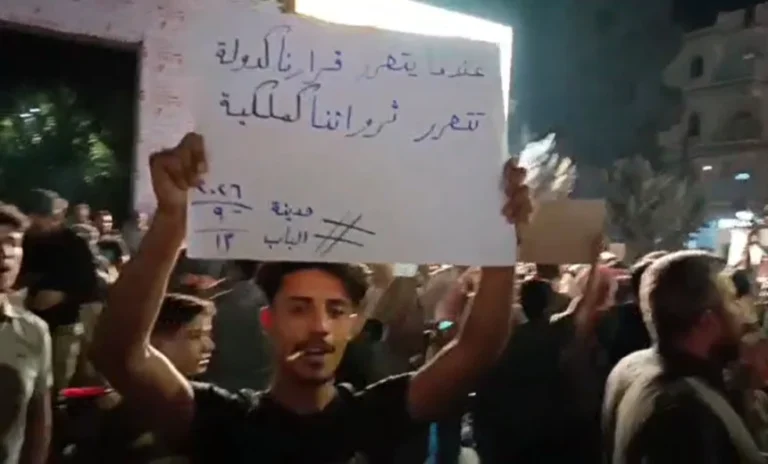 عندما يتحرر قرارنا كدولة
تتحرر ثرواتنا كملكية
# مدينة
الباب
٢٠٢٦
٩
١٣